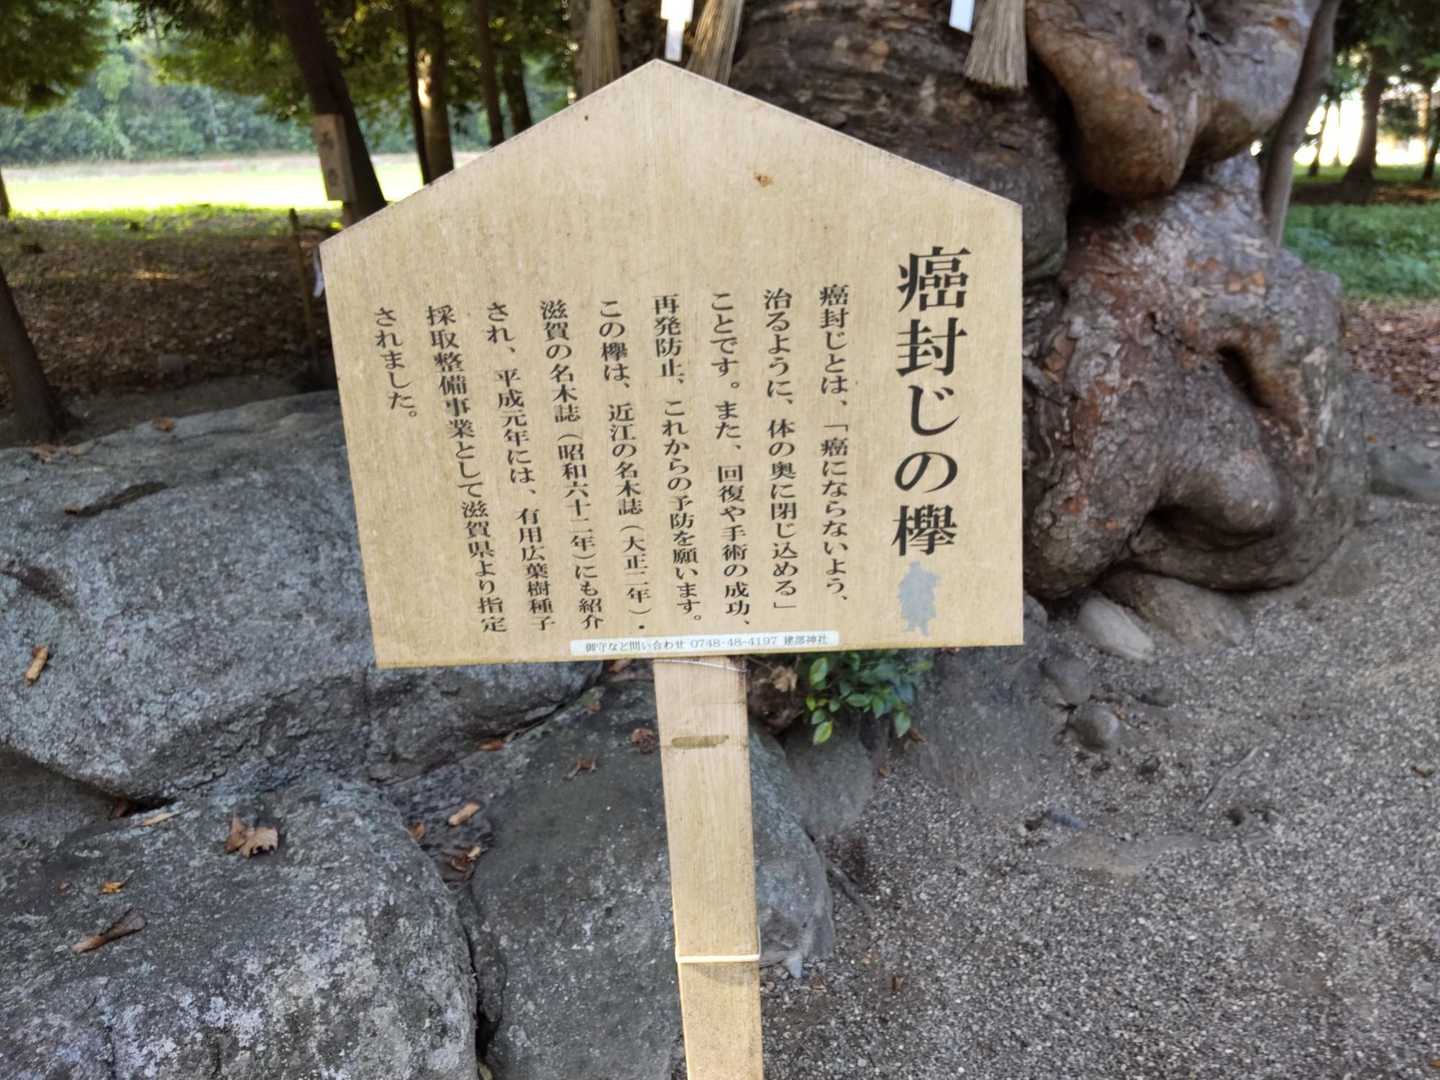 癌封じの欅
癌封じとは、「癌にならないよう、
治るように、体の奥に閉じ込める」
ことです。また、回復や手術の成功、
再発防止、これからの予防を願います。
この欅は、近江の名木誌（大正二年）・
滋賀の名木誌（昭和六十二年）にも紹介
され、平成元年には、有用広葉樹種子
採取整備事業として滋賀県より指定
されました。
御守など問い合わせ 0748-48-4197 建部神社